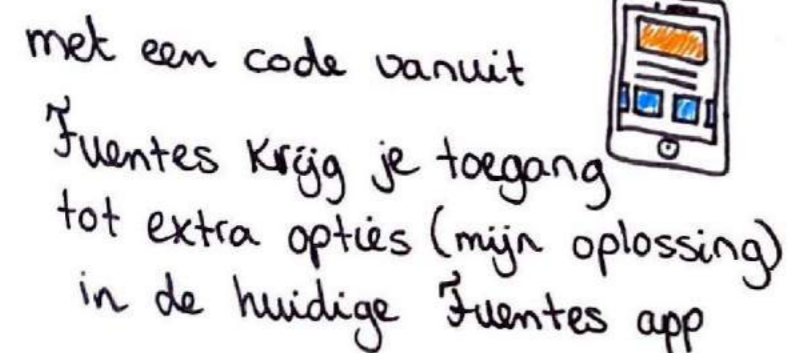 met een code vanuit
Fuentes krijg je toegang
tot extra opties (mijn oplossing)
in de huidige Fuentes app